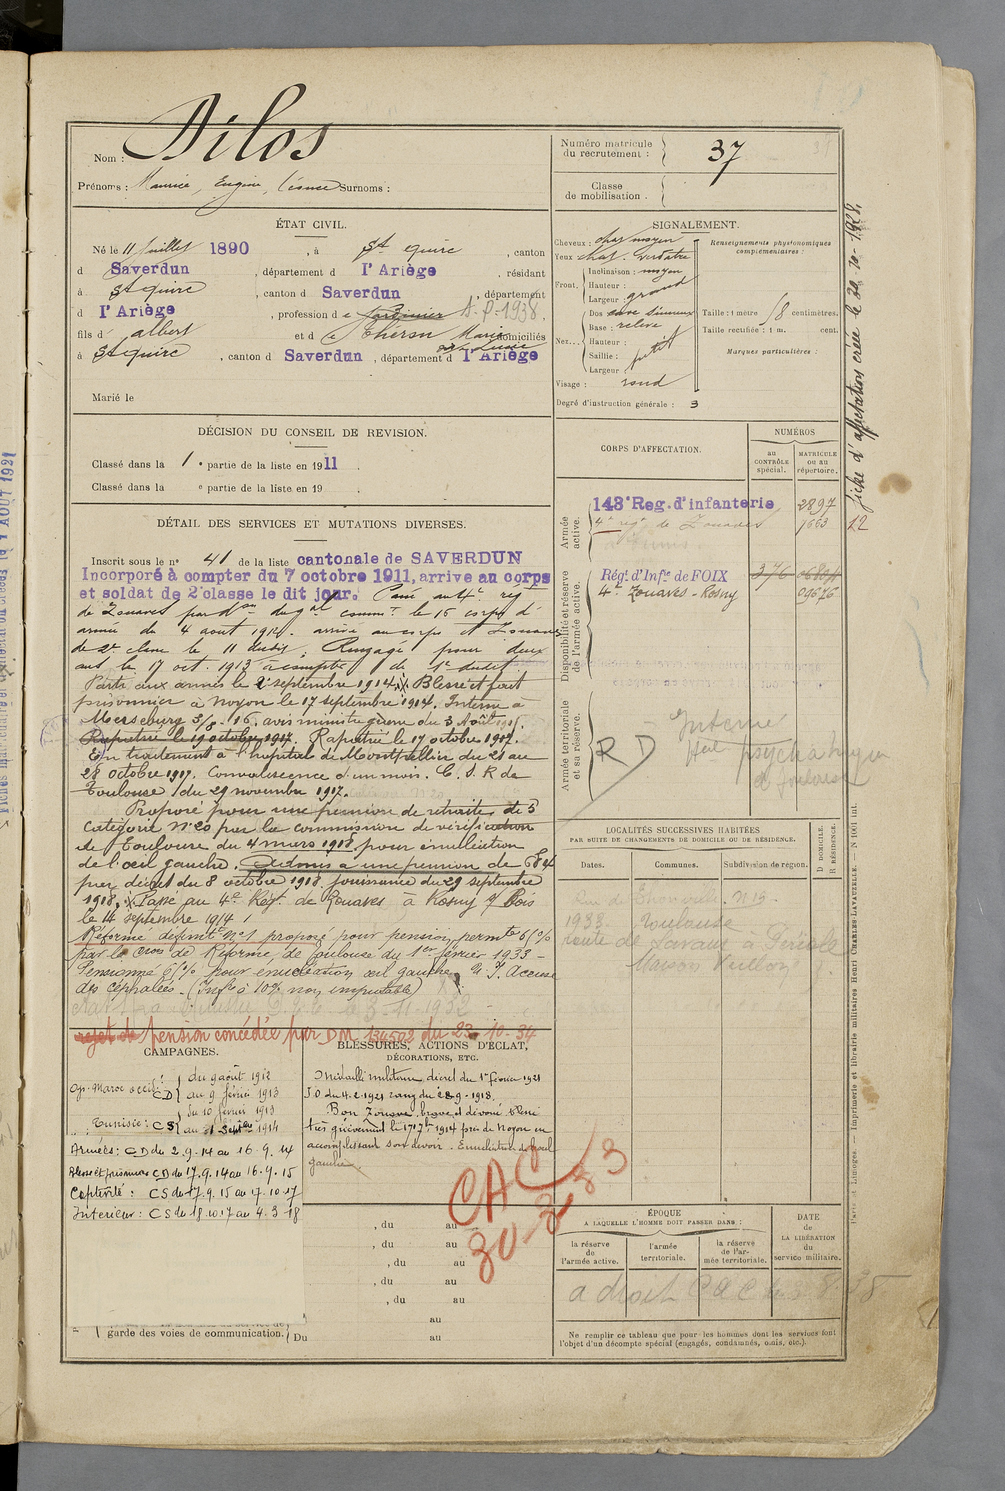 Nom : Dilos
Prénoms : Maurice, Eugène, Léonce Surnoms :
Numéro matricule du recrutement : 37
Classe de mobilisation.
ÉTAT CIVIL.
Né le 11 Juillet 1890, à St Quirc, canton
d Saverdun, département d l'Ariège, résidant
à St Quirc, canton d Saverdun, département
d l'Ariège, profession de Jardinier A-P-1938.
fils d' Albert et de Théron Marie domiciliés
à St Quirc, canton d Saverdun, département d l'Ariège
Marié le
SIGNALEMENT.
Cheveux: chat moyen
Yeux chat. verdâtre
Front, Inclinaison: moyen
Hauteur:
Largeur: grand
Nez... Dos cave sinueux
Base: relevé
Hauteur:
Saillie: petit
Largeur:
Visage: rond
Degré d'instruction générale: 3
Renseignements physionomiques complémentaires
Taille: 1 mètre 58 centimètres.
Taille rectifiée: 1 m. cent.
Marques particulières:
DÉCISION DU CONSEIL DE REVISION.
Classé dans la 1e partie de la liste en 1911.
Classé dans la e partie de la liste en 19 .
CORPS D'AFFECTATION.
NUMÉROS
au CONTRÔLE spécial.
MATRICULE OU AU répertoire.
Armée active.
143e Reg. d'infanterie 2897
4e régt de Zouaves 1663
à Tunis.
Disponibilité et réserve de l'armée active.
Régt d'Infie de FOIX 376
4e Zouaves - Rosny 09676
Armée territoriale et sa réserve.
R D
Interné
Htal psychiatrique
à Toulouse
DÉTAIL DES SERVICES ET MUTATIONS DIVERSES.
Inscrit sous le no 41 de la liste cantonale de SAVERDUN
Incorporé à compter du 7 octobre 1911, arrive au corps
et soldat de 2e classe le dit jour. Passé au 4e régt
de Zouaves par don du gal commt le 16 corps d'
armée du 4 aout 1912. arrivé au corps et Zouave
de 2e classe le 11 dudit; Rengagé pour deux
ans le 17 oct. 1913 à compter du 1er dudit
Parti aux armées le 2 septembre 1914. Blessé et fait
prisonnier à Noyon le 17 septembre 1914. Interné à
Merseburg 3/8/16. avis ministre guerre du 3 Août 1915.
Rapatrié le 19 octobre 1917. Rapatrié le 17 octobre 1917.
En traitement à l'hôpital de Montpellier du 21 au
28 octobre 1917. Convalescence d'un mois. C.S.R de
Toulouse du 29 novembre 1917.
Proposé pour une pension de retraite de 5
catégorie No 20 par la commission de vérification
de Toulouse du 4 mars 1918, pour énucléation
de l'œil gauche. Admis à une pension de 684
par décret du 8 octobre 1918 jouissance du 29 septembre
1918. Passé au 4e Régt de Zouaves à Rosny s/ Bois
le 14 septembre 1914
Réformé définit. no 1 proposé pour pension permte 65%
par la Cion de Réforme de Toulouse du 1er février 1933 -
Pensionné 65% pour énucléation œil gauche. Accuse
des céphalées - (Infté à 10% non imputable)
rejet de pension concédée par DM 134502 du 23-10-34
CAMPAGNES.
Op. Maroc occid: CD du 9 août 1912
au 9 février 1913
Tunisie: CS du 10 février 1913
au 1 Septbre 1914
Armées: CD du 2.9.14 au 16.9.14
Blessé et prisonnier CD du 17.9.14 au 16.9.15
Captivité: CS du 17.9.15 au 17.10.17
Intérieur: CS du 18.10.17 au 4.3.18
garde des voies de communication. Du au
BLESSURES, ACTIONS D'ÉCLAT, DÉCORATIONS, ETC.
Médaille militaire, décret du 1er février 1921
JO du 4.2.1921 rang du 28-9-1918.
Bon Zouave, brave et dévoué blessé
très grièvement le 17 7bre 1914 près de Noyon en
accomplissant son devoir. Enucléation de l'œil
gauche
CAC
30-3-33
, du au
, du au
, du au
, du au
, du au
au
LOCALITÉS SUCCESSIVES HABITÉES
PAR SUITE DE CHANGEMENTS DE DOMICILE OU DE RÉSIDENCE.
Dates. Communes. Subdivision de région.
D DOMICILE. R RÉSIDENCE.
1933 Toulouse
route de Lavaur à
Maison
ÉPOQUE
A LAQUELLE L'HOMME DOIT PASSER DANS:
la réserve de l'armée active.
l'armée territoriale.
la réserve de l'armée territoriale.
DATE de LA LIBÉRATION du service militaire.
a droit CAC
Ne remplir ce tableau que pour les hommes dont les services font
l'objet d'un décompte spécial (engagés, condamnés, omis, etc.).
fiche d'affectation créée le 20-10-1928.
12
Paris et Limoges. — Imprimerie et librairie militaires Henri CHARLES-LAVAUZELLE.